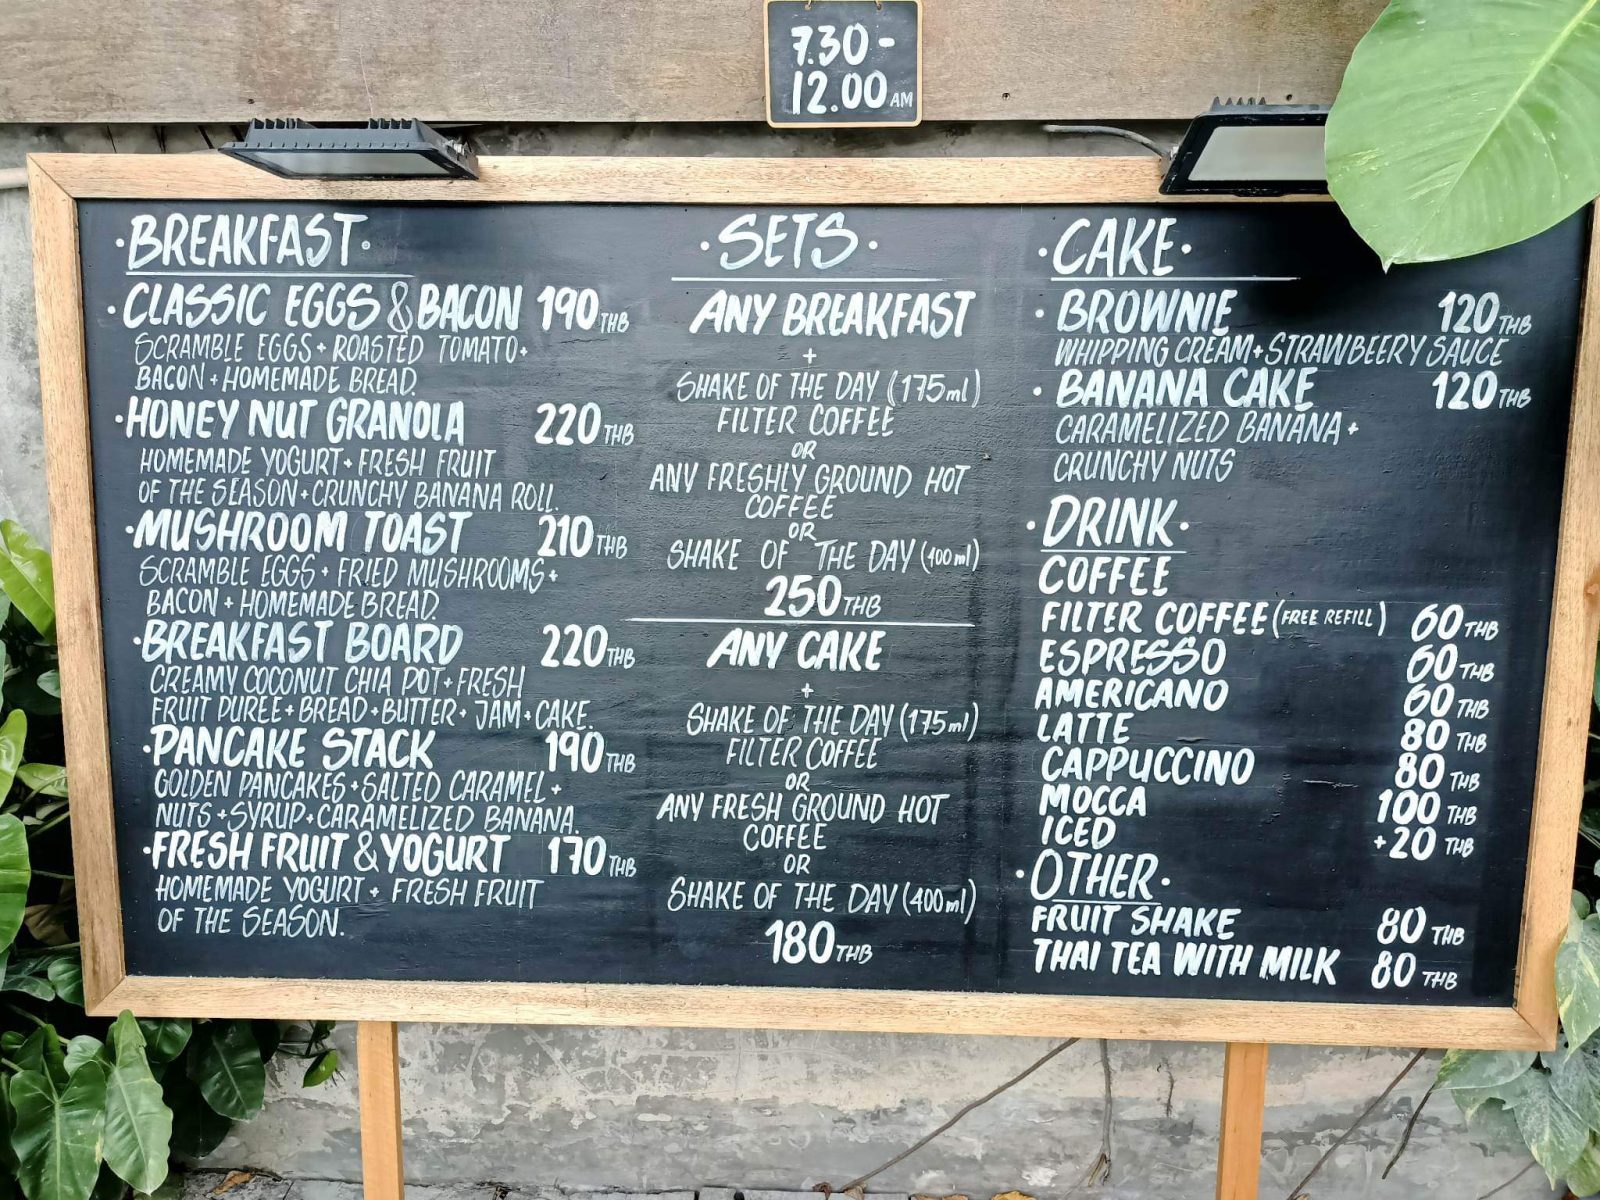 7.30 -
12.00 AM
· BREAKFAST ·
· CLASSIC EGGS & BACON 190 THB
SCRAMBLE EGGS + ROASTED TOMATO +
BACON + HOMEMADE BREAD.
· HONEY NUT GRANOLA 220 THB
HOMEMADE YOGURT + FRESH FRUIT
OF THE SEASON + CRUNCHY BANANA ROLL.
· MUSHROOM TOAST 210 THB
SCRAMBLE EGGS + FRIED MUSHROOMS +
BACON + HOMEMADE BREAD.
· BREAKFAST BOARD 220 THB
CREAMY COCONUT CHIA POT + FRESH
FRUIT PUREE + BREAD + BUTTER + JAM + CAKE.
· PANCAKE STACK 190 THB
GOLDEN PANCAKES + SALTED CARAMEL +
NUTS + SYRUP + CARAMELIZED BANANA.
· FRESH FRUIT & YOGURT 170 THB
HOMEMADE YOGURT + FRESH FRUIT
OF THE SEASON.
· SETS ·
ANY BREAKFAST
+
SHAKE OF THE DAY (175ml)
FILTER COFFEE
OR
ANY FRESHLY GROUND HOT
COFFEE
OR
SHAKE OF THE DAY (400ml)
250 THB
ANY CAKE
+
SHAKE OF THE DAY (175ml)
FILTER COFFEE
OR
ANY FRESH GROUND HOT
COFFEE
OR
SHAKE OF THE DAY (400ml)
180 THB
· CAKE ·
· BROWNIE 120 THB
WHIPPING CREAM + STRAWBEERY SAUCE
· BANANA CAKE 120 THB
CARAMELIZED BANANA +
CRUNCHY NUTS
· DRINK ·
COFFEE
FILTER COFFEE (FREE REFILL) 60 THB
ESPRESSO 60 THB
AMERICANO 60 THB
LATTE 80 THB
CAPPUCCINO 80 THB
MOCCA 100 THB
ICED +20 THB
· OTHER ·
FRUIT SHAKE 80 THB
THAI TEA WITH MILK 80 THB